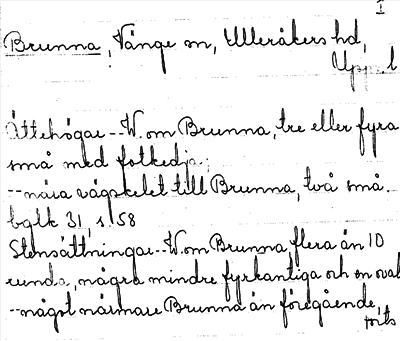 I
Brunna, Vänge sn, Ulleråkers hd,
Upp. l
Ättehögar -- W. om Brunna, tre eller fyra
små med fotkedja;
-- nära vägskelet till Brunna, två små.
bglk 31, s. 58
Stensättningar -- W. om Brunna flera än 10
runda, några mindre fyrkantiga och en oval
-- något närmare Brunna än föregående,